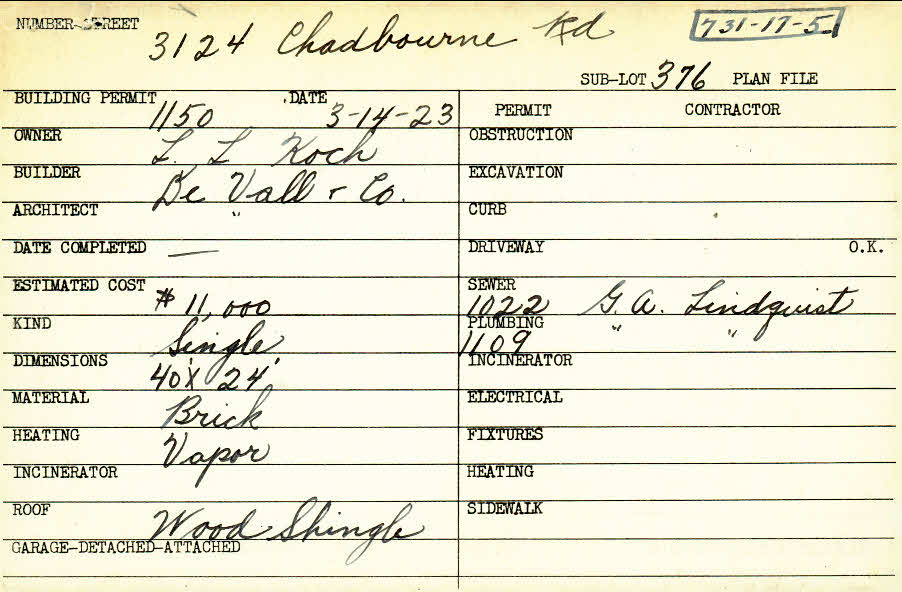 NUMBER-STREET 3124 Chadbourne Rd 731-17-5
SUB-LOT 376 PLAN FILE
BUILDING PERMIT 1150 DATE 3-14-23
OWNER L. L Koch
BUILDER De Vall & Co.
ARCHITECT "
DATE COMPLETED —
ESTIMATED COST $ 11,000
KIND Single
DIMENSIONS 40' X 24'
MATERIAL Brick
HEATING Vapor
INCINERATOR
ROOF Wood Shingle
GARAGE-DETACHED-ATTACHED
PERMIT CONTRACTOR
OBSTRUCTION
EXCAVATION
CURB
DRIVEWAY O.K.
SEWER 1022 G. A. Lindquist
PLUMBING 1109 " "
INCINERATOR
ELECTRICAL
FIXTURES
HEATING
SIDEWALK